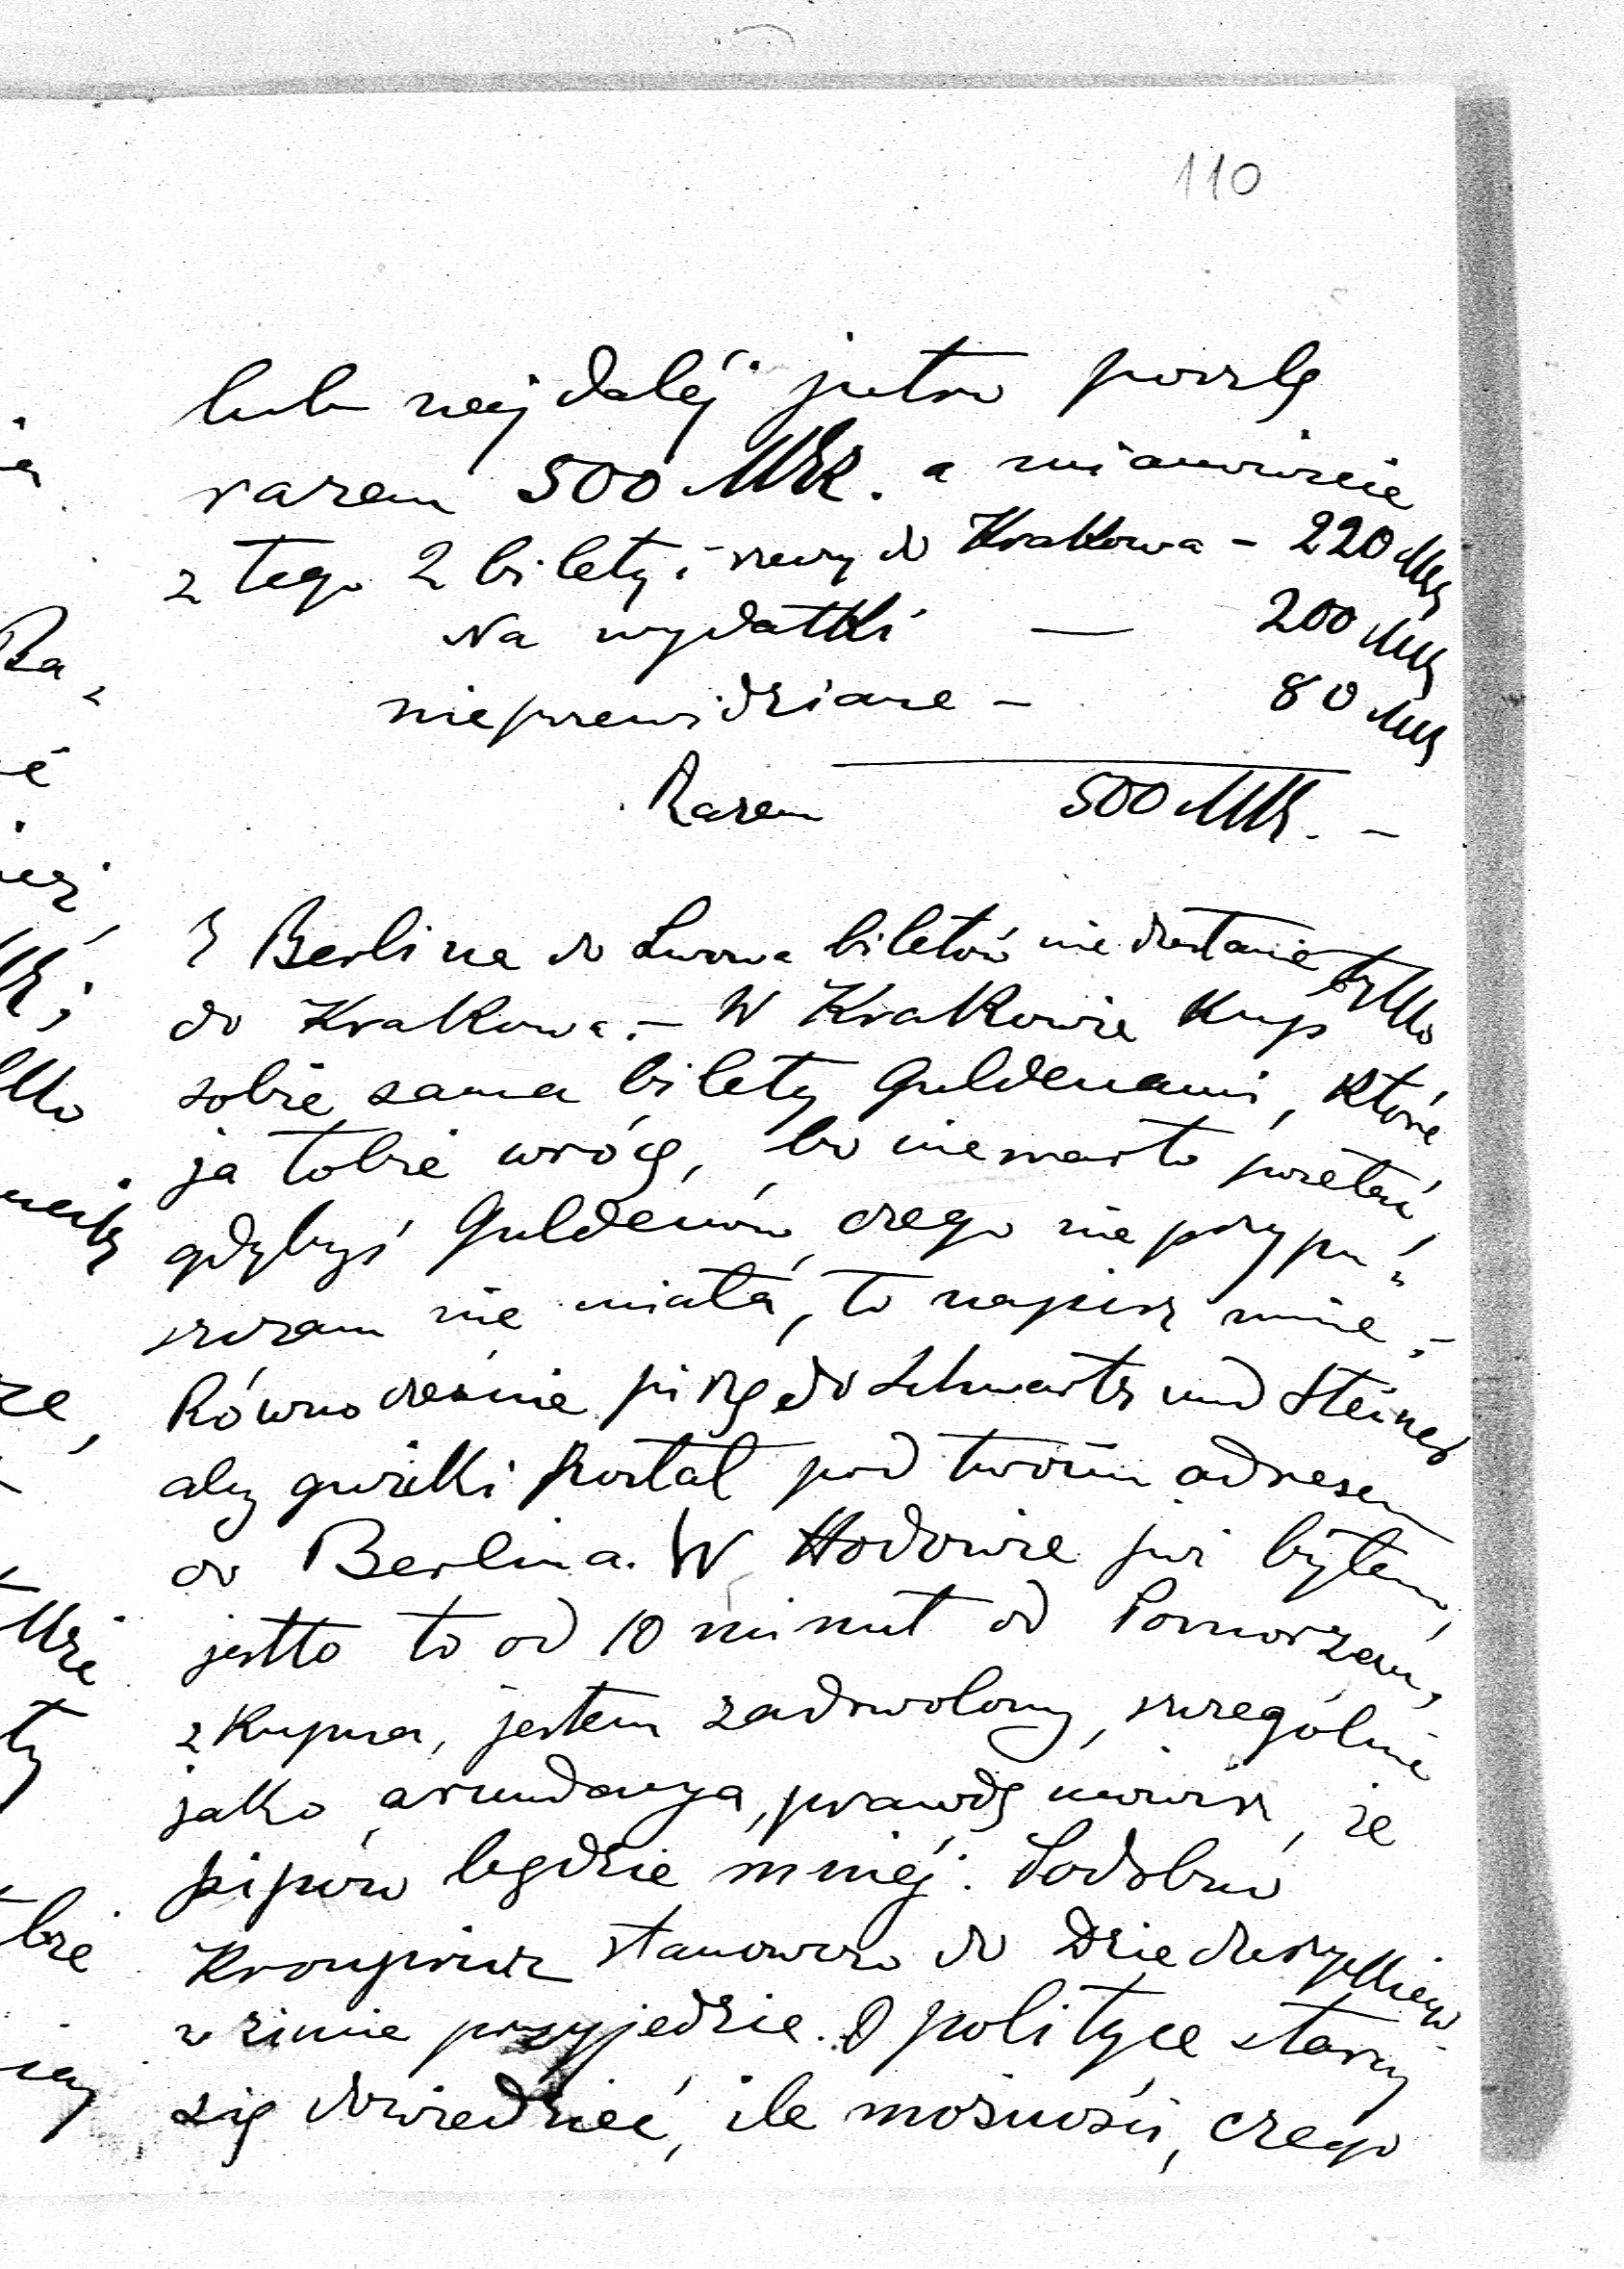 110
lub najdaléj jutro poszlę
razem 500 Mrk. a mianowicie
z tego 2 bilety i rzeczy do Krakowa – 220 Mrk
Na wydatki — 200 Mrk
nieprzewidziane – 80 Mrk
Razem 500 Mrk. –
Z Berlina do Lwowa biletów nie dostanie tylko
do Krakowa. – W Krakowie kup
sobie sama bilety Guldenami, które
ja tobie wrócę, bo niewarto
gdybyś Guldenów, czego nie przypu-
szczam nie miała, to napisz mnie. –
Równocześnie piszę do Schwartz und Steiner
aby guziki przysłał pod twoim adresem
do Berlina. W Hodowie już byłem,
jestto to od 10 minut od Pomorzan,
z kupna, jestem zadowolony, szczególnie
jako arrondacya, prawdę mówisz, że
będzie mniéj. Podobno
Kronprinz stanowczo do Dzieduszyckiego
w zimie przyjedzie. O polityce staraj
się dowiedzieć, ile możności, czego